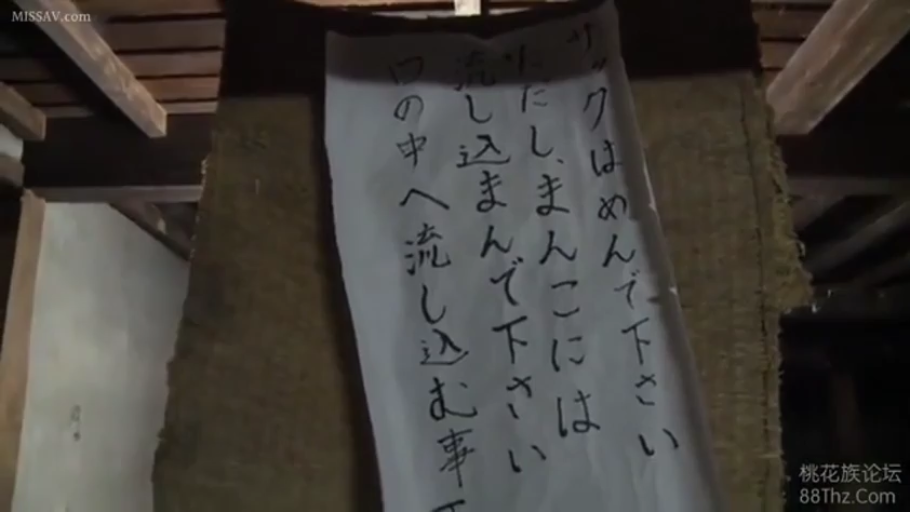 MISSAV.com
サックはめんで下さい
ただし、まんこには
流し込まんで下さい
口の中へ流し込む事
桃花族论坛
88Thz.Com